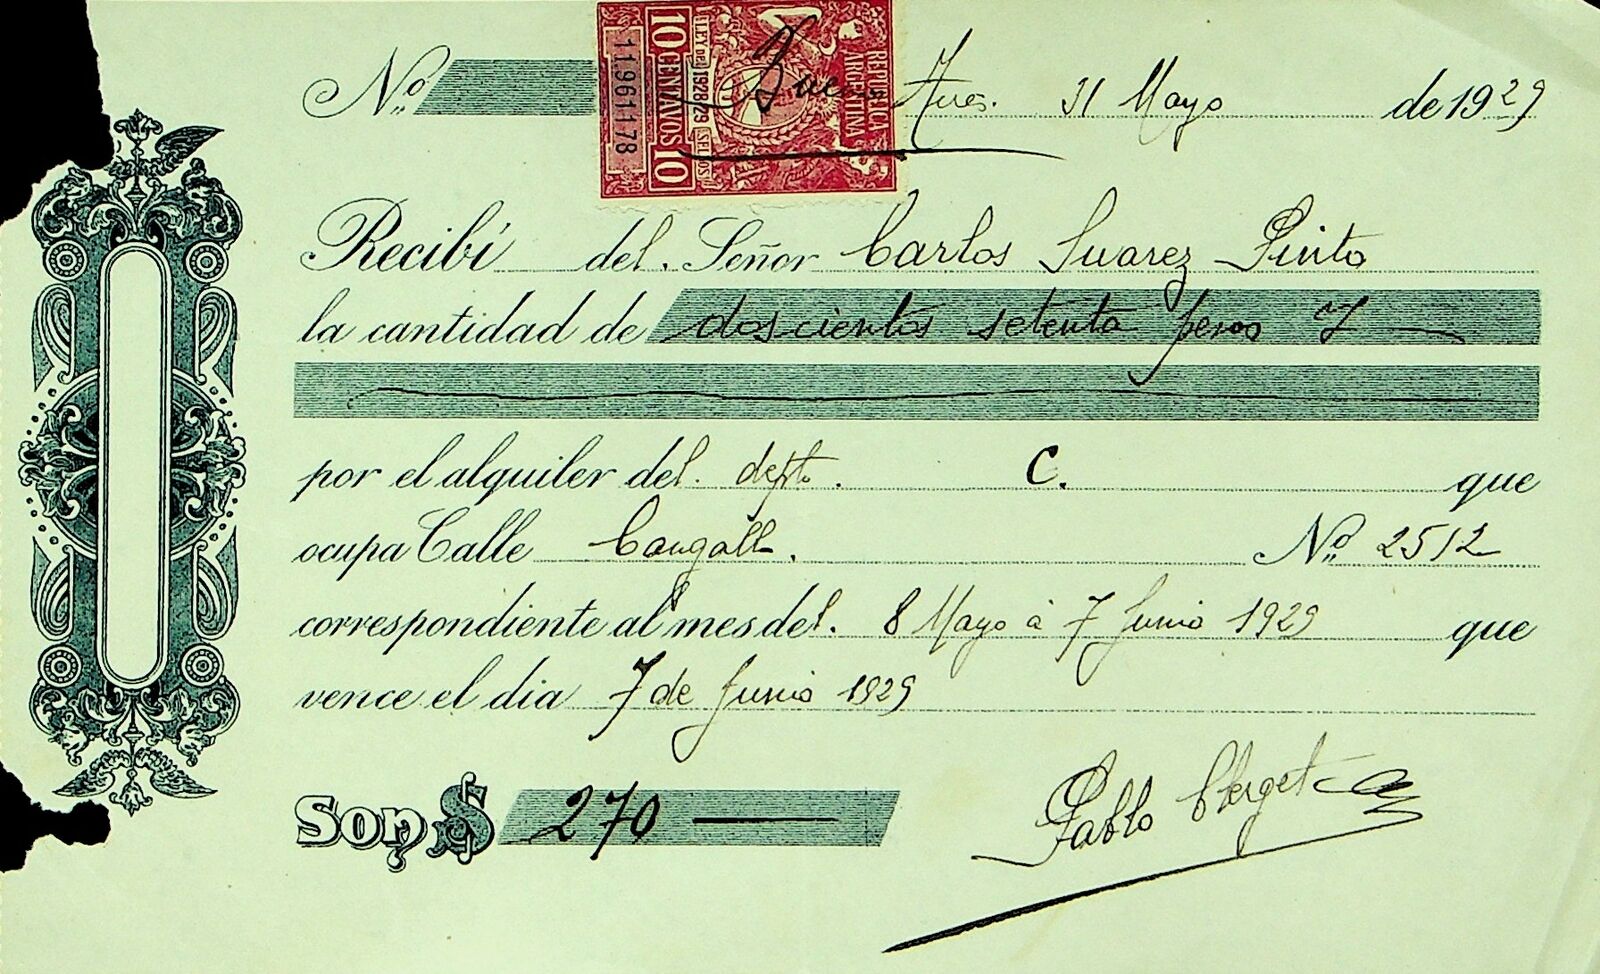 Nº Buenos Aires. 31 Mayo de 1929
REPUBLICA
ARGENTINA
LEY DE 1928/29 SELLOS
10 CENTAVOS 10
11961178
Recibí del. Señor Carlos Suarez Pinto
la cantidad de doscientos setenta pesos
por el alquiler del. depto. C. que
ocupa Calle Cangall. Nº 2512
correspondiente al mes del. 8 Mayo á 7 Junio 1929 que
vence el dia 7 de Junio 1929
Son $ 270
Pablo Clerget